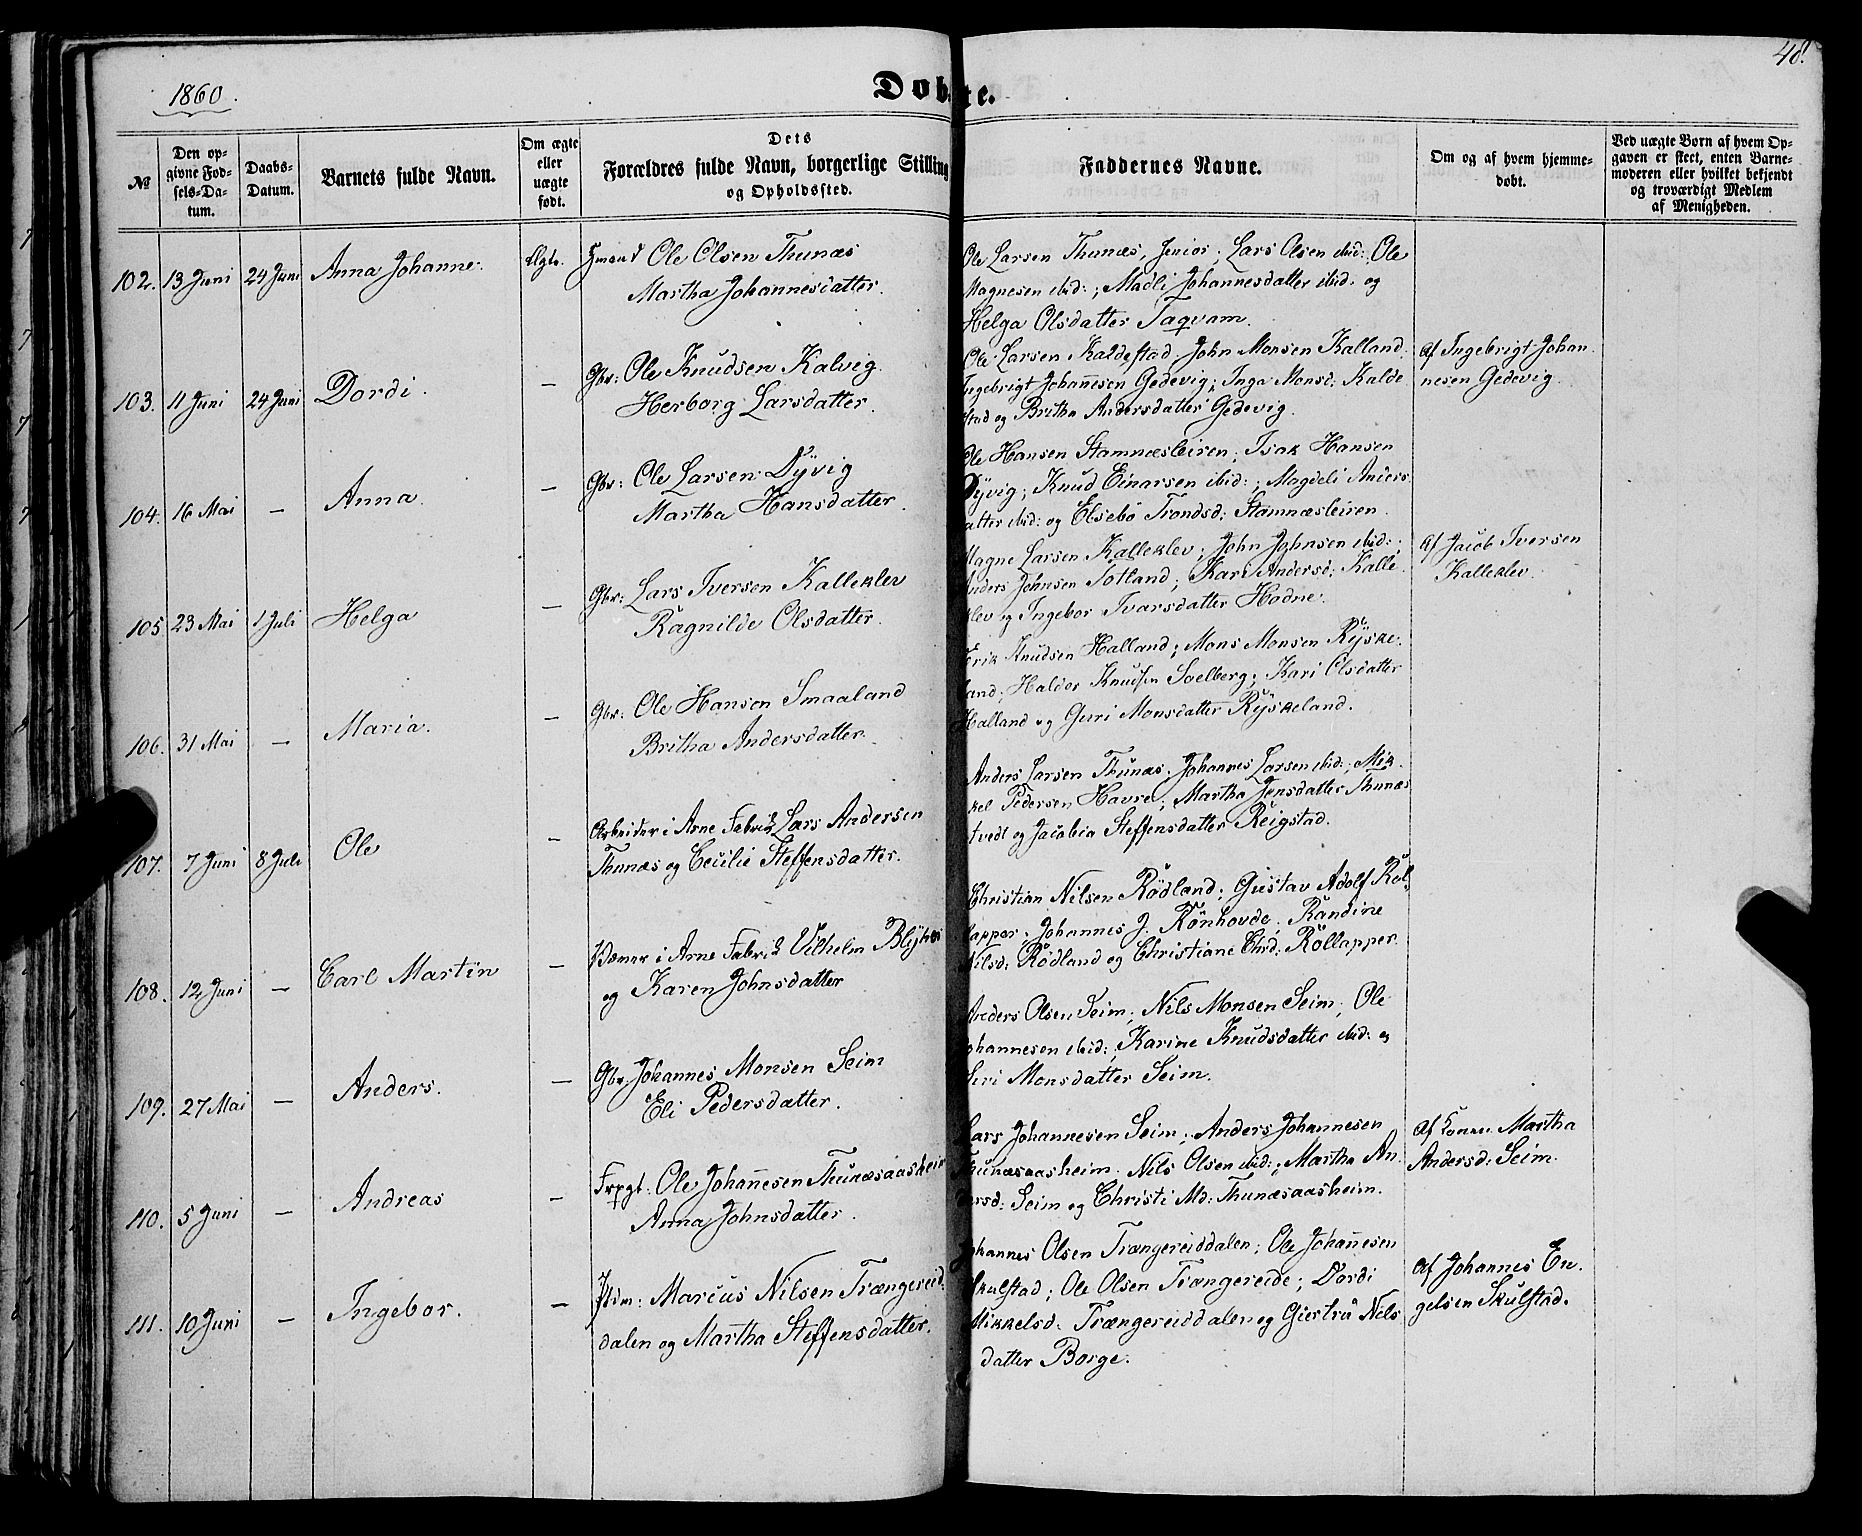 48.
1860.
Døbte.
№
Den opgivne Fødsels-Datum.
Daabs-Datum.
Barnets fulde Navn.
Om ægte eller uægte født.
Dets Forældres fulde Navn, borgerlige Stilling og Opholdssted.
Faddernes Navne.
Om og af hvem hjemmedøbt.
Ved uægte Børn af hvem Opgaven er skeet, enten Barnemoderen eller hvilket bekjendt og troværdigt Medlem af Menigheden.
102. 13 Juni 24 Juni Anna Johanne. Ægte. Ole Olsen Thunæs
Martha Johannesdatter.
Ole Larsen Thunæs, Senior; Lars Olsen ibid: Ole
Magnesen ibid:; Madli Johannesdatter ibid. og
Helga Olsdatter Taqvam.
103. 11 Juni 24 Juni Dordi. — Gbr: Ole Knudsen Kalvig.
Herborg Larsdatter.
Ole Larsen Kaldestad; John Monsen Kalland;
Ingebrigt Johannesen Gedevig; Inga Monsd: Kalde
stad og Britha Andersdatter Gedevig.
Af Ingebrigt Johan
nesen Gedevig.
104. 16 Mai — Anna. — Gbr: Ole Larsen Dyvig
Martha Hansdatter.
Ole Hansen Stamnæsleiren; Isak Hansen
Dyvig; Knud Einarsen ibid:; Magdeli Anders
datter ibid: og Elsebö Trondsd: Stamnæsleiren.
105 23 Mai 1 Juli Helga — Gbr: Lars Iversen Kalleklev
Ragnilde Olsdatter.
Magne Larsen Kalleklev; John Johnsen ibid:;
Anders Johnsen Totland; Kari Andersd: Kalle
klev og Ingebor Ivarsdatter Hodne.
Af Jacob Iversen
Kalleklev.
106. 31 Mai — Maria. — Gbr: Ole Hansen Smaaland
Britha Andersdatter.
Erik Knudsen Halland; Mons Monsen Ryske
land; Haldor Knudsen Soelberg; Kari Olsdatter
Halland og Guri Monsdatter Ryskeland.
107. 7 Juni 8 Juli Ole — Arbeider i Arne Fabrik Lars Andersen
Thunæs og Cecilie Steffensdatter.
Anders Larsen Thunæs; Johannes Larsen ibid:; Mik
kel Pedersen Havre; Martha Jensdatter Thunæs
tvedt og Jacobia Steffensdatter Reigstad.
108. 12 Juni — Carl Martin — Væver i Arne Fabrik Vilhelm
og Karen Johnsdatter
Christian Nilsen Rödland; Gustav Adolf Röl
lapper; Johannes J. Rönhovde; Randine
Nilsd: Rödland og Christiane Chrd: Röllapper.
109. 27 Mai — Anders. — Gbr: Johannes Monsen Seim
Eli Pedersdatter.
Anders Olsen Seim; Nils Monsen Seim; Ole
Johannesen ibid:; Karine Knudsdatter ibid: og
Guri Monsdatter Seim.
110. 5 Juni — Andreas — Ole Johannesen Thunæsaasheim
Anna Johnsdatter.
Lars Johannesen Seim; Anders Johannesen
Thunæsaasheim. Nils Olsen ibid:; Martha An
dersd: Seim og Christi Md: Thunæsaasheim.
Af Konen Martha
Andersd: Seim.
111. 10 Juni — Ingebor. — Marcus Nilsen Trængereid
dalen og Martha Steffensdatter.
Johannes Olsen Trængereiddalen; Ole Johannesen
Skulstad; Ole Olsen Trængereide; Dordi
Mikkelsd: Trængereiddalen og Giertru Nils
datter Borge.
Af Johannes En
gelsen Skulstad.